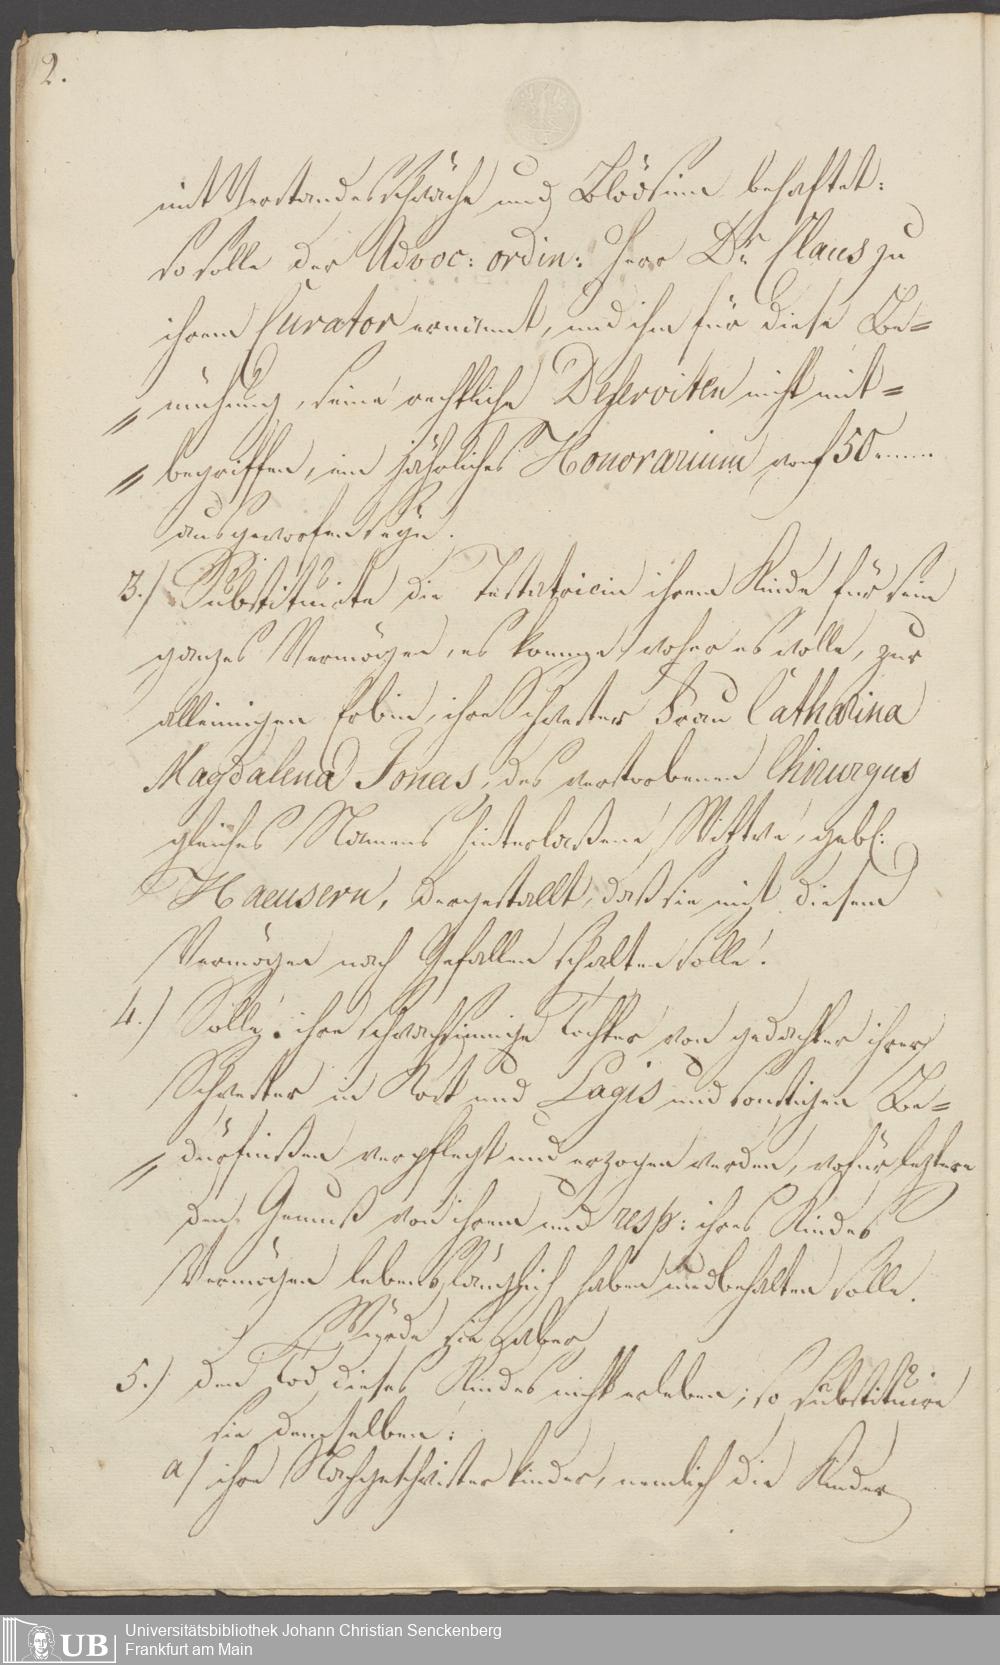 2.
mit Verstandesschwäche und Blödsinn behaftet:
so solle der Advoc: ordin: Herr Dr. Claus zu
ihrem Curator ernannt, und ihm für diese Be=
„ mühung, seine rechtliche Deserviten nicht mit=
„ begriffen, ein jährliches Honorarium von f 50
ausgeworfen seyn.
3.) Substituirte die Testatricin ihrem Kinde für sein
ganzes Vermögen, es komme woher es wolle, zur
alleinigen Erbin, ihre Schwester Frau Catharina
Magdalena Jonas, des verstorbenen Chirurgus
gleiches Namens hinterlaßene Wittwe, gebl:
Haeusern, dergestallt, daß sie mit diesem
Vermögen nach Gefallen schalten solle!
4.) Solle ihre schwachsinnige Tochter von gedachter ihrer
Schwester in Kost und Logis und sonstigen Be=
„ dürfnißen verpflegt und erzogen werden, wofür leztere
den Genuß von ihrem und resp: ihres Kindes
Vermögen lebenslänglich haben und behalten solle.
Würde sie aber
5.) den Tod dieses Kindes nicht erleben; so substituire
sie demselben:
a) ihre Nachgeschwisterkinder, nemlich die Kinder
UB
Universitätsbibliothek Johann Christian Senckenberg
Frankfurt am Main